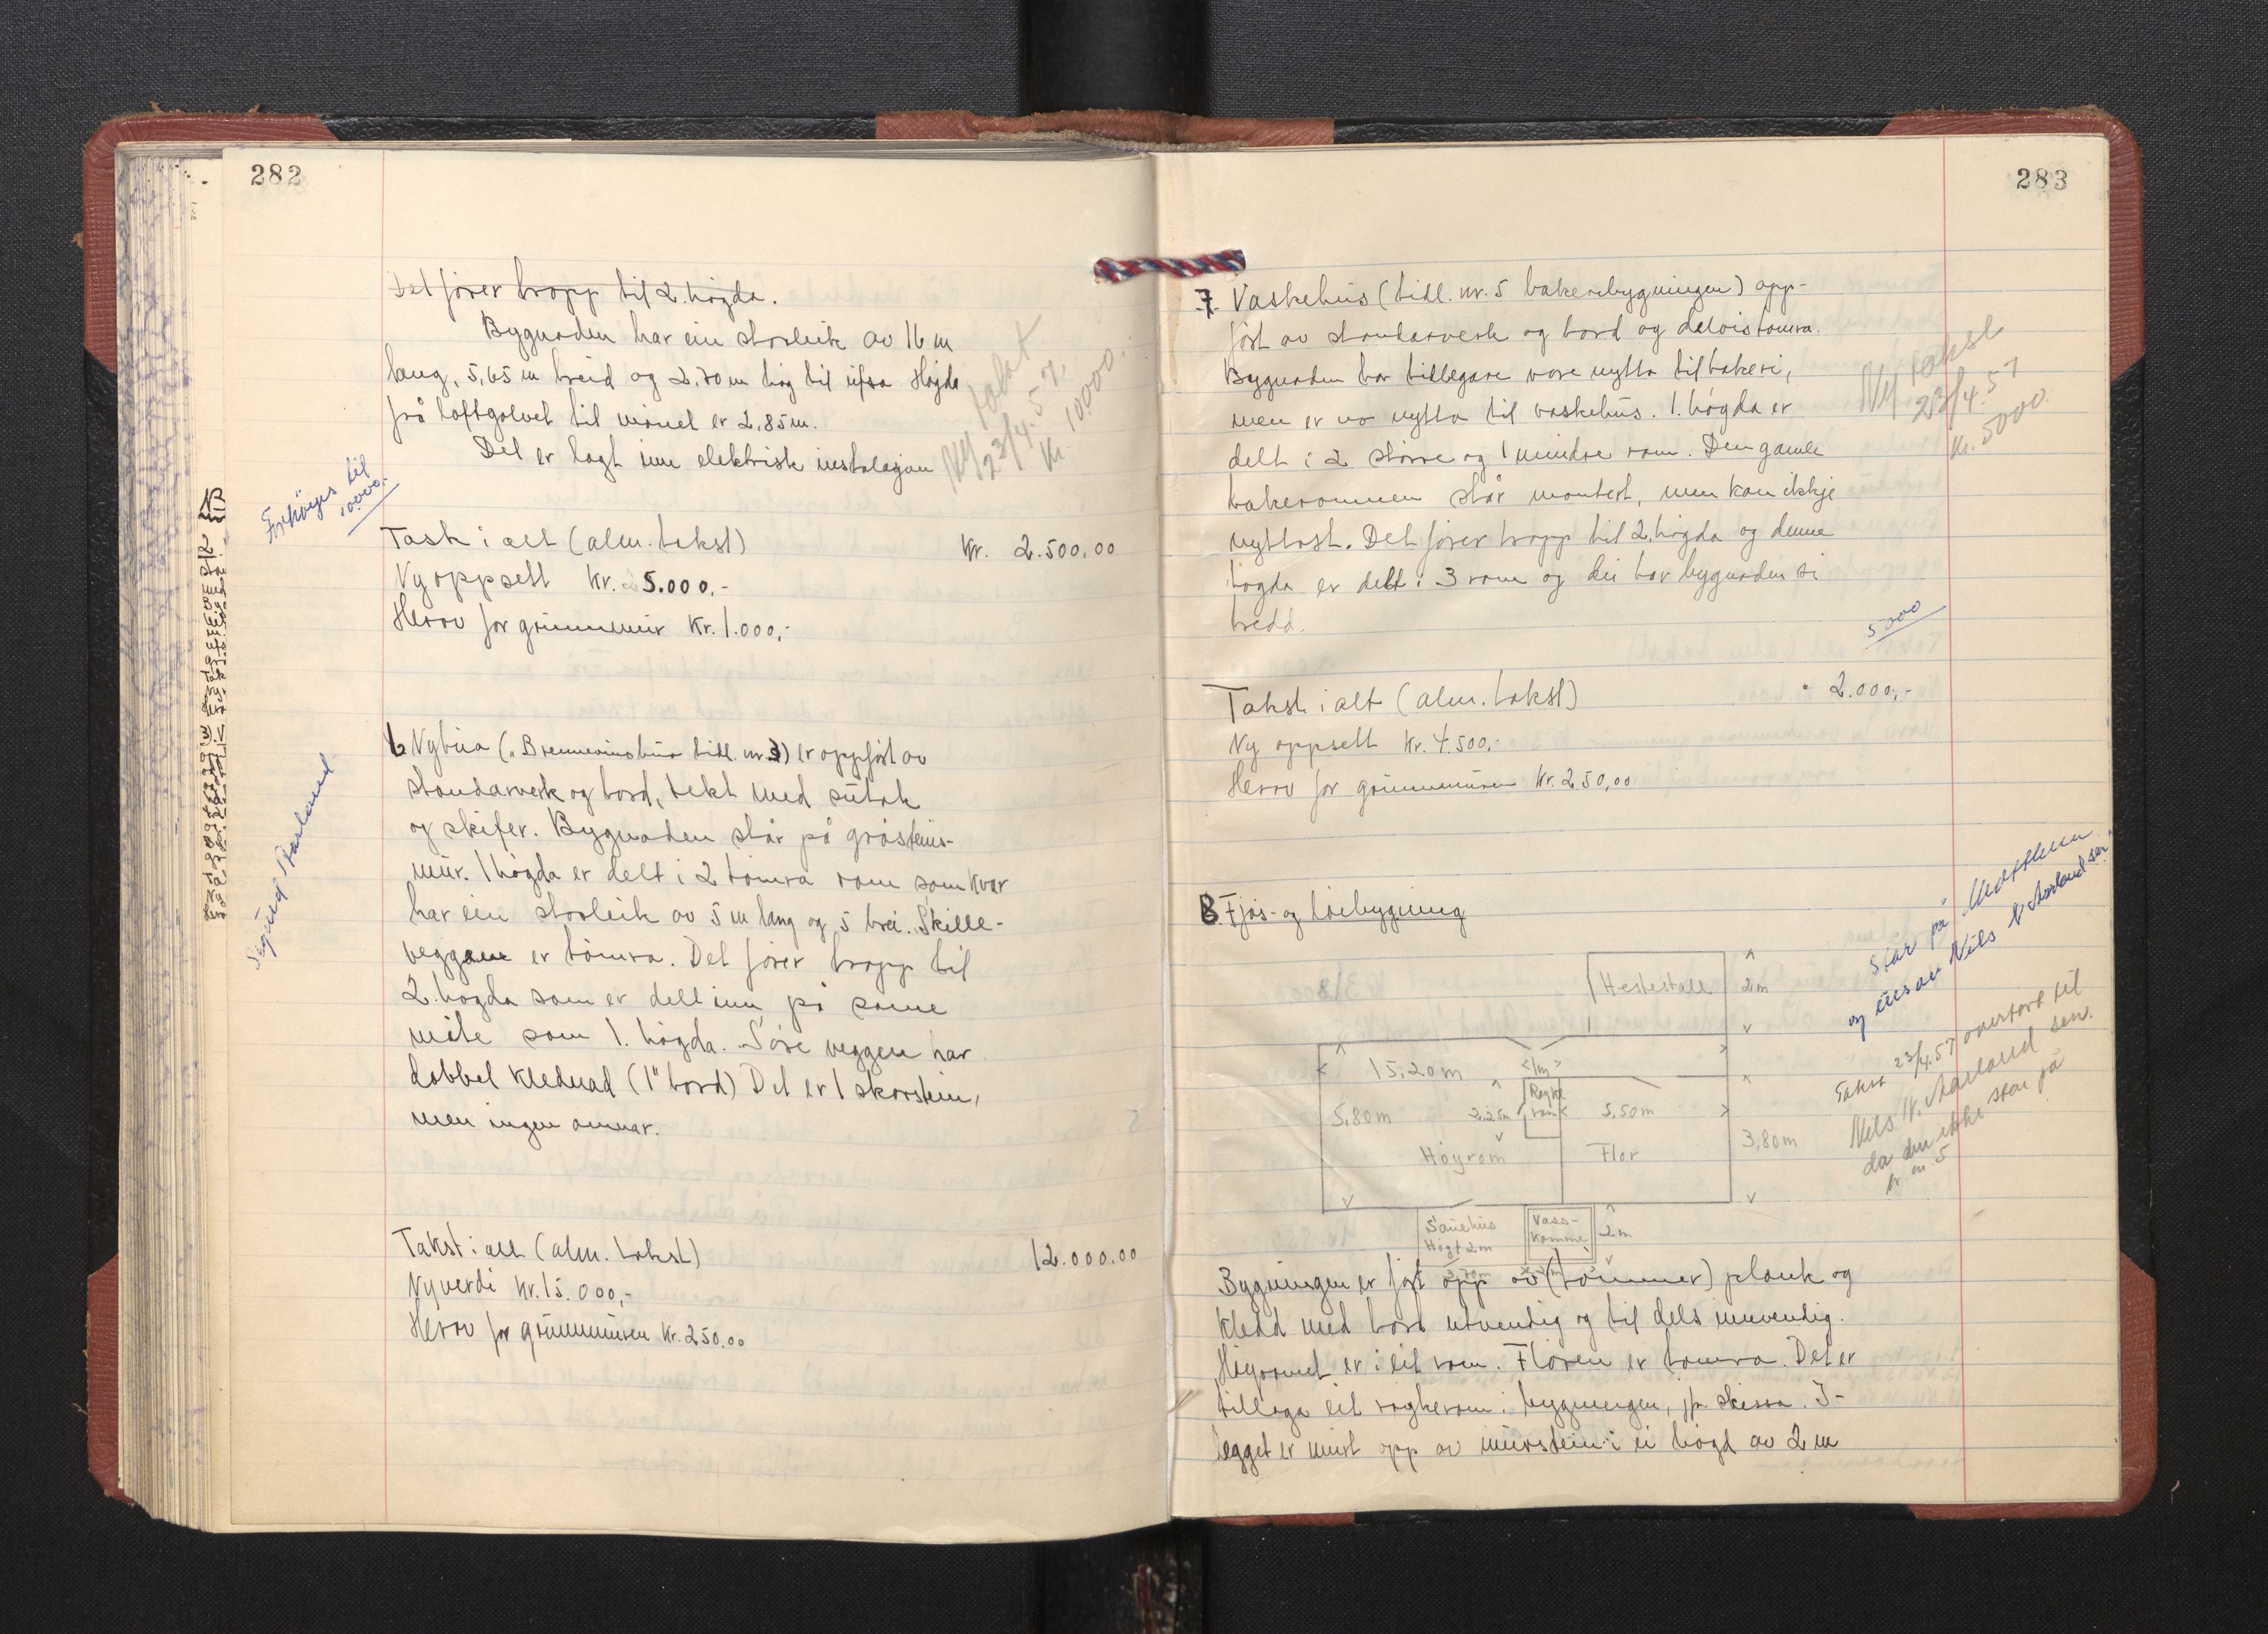 282
Det fører tropp til 2. høgda.
Bygnaden har ein storleik av 16 m
lang, 5,65 m breid og 2,70 m høg til ufsa Høgda
frå loftgolvet til mønet er 2,85 m.
Det er lagt inn elektrisk instalasjon
Ny takst
23/4.57.
Kr. 10000.
Forhøyes til
10.000.-
Takst i alt (alm. takst) Kr. 2.500,00
Ny oppsett Kr. 5.000.-
Herav for grunnmur Kr. 1.000,-
Sigurd Aarland
6 Nybua ("Brennevinsbua tidl. nr. 3) er oppført av
standarverk og bord, tekt med sutak
og skifer. Bygnaden står på gråsteins-
mur. 1 høgda er delt i 2 tømra rom som kvar
har ein storleik av 5 m lang og 5 brei. Skille-
veggane er tømra. Det fører tropp til
2. høgda som er delt inn på same
måte som 1. høgda. Søre veggen har
dobbel klednad (1" bord) Det er 1 skorstein,
men ingen omnar.
Takst i alt (alm. takst) 12.000.00
Nyverdi Kr. 15.000,-
Herav for grunnmuren Kr. 250.00
283
7. Vaskehus (tidl. nr. 5 bakeribygningen) opp-
ført av standarverk og bord og delvis tømra.
Bygnaden har tidlegare vore nytta til bakeri,
men er no nytta til vaskehus. 1. høgda er
delt i 2 større og 1 mindre rom. Den gamle
bakeromnen står montert, men kan ikkje
nyttast. Det fører tropp til 2. høgda og denne
høgda er delt i 3 rom og dei har bygnaden si
bredd.
Ny takst
23/4.57
Kr. 5000.
5000
Takst i alt (alm. takst) " 2.000,-
Ny oppsett Kr. 4.500,-
Herav for grunnmuren Kr. 250,00
8. Fjøs- og løebygning
står på
og eies av Nils N Aarland sen.
Takst 23/4.57 overført til
Nils N. Aarland sen.
da den ikke står på
br. nr. 5
Hestestall 2m
15,20m <1m>
5,80m 2,25m Røykt rom 5,50m
3,80m
Høyrom Flor
Sauehus
Høgt 2m
Vass-
komme 2m
3,70m
Bygningen er ført opp av (tømmer) plank og
kledd med bord utvendig og til dels innvendig.
Høyromet er i eit rom. Floren er tømra. Det er
tillaga eit røykerom i bygningen, jfr. skissa. I-
legget er murt opp av murstein i ei høgd av 2 m